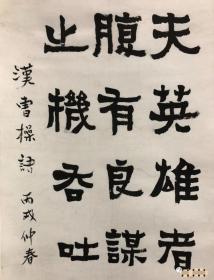 夫英雄者
腹有良謀
止機吞吐
漢曹操語 丙戌仲春